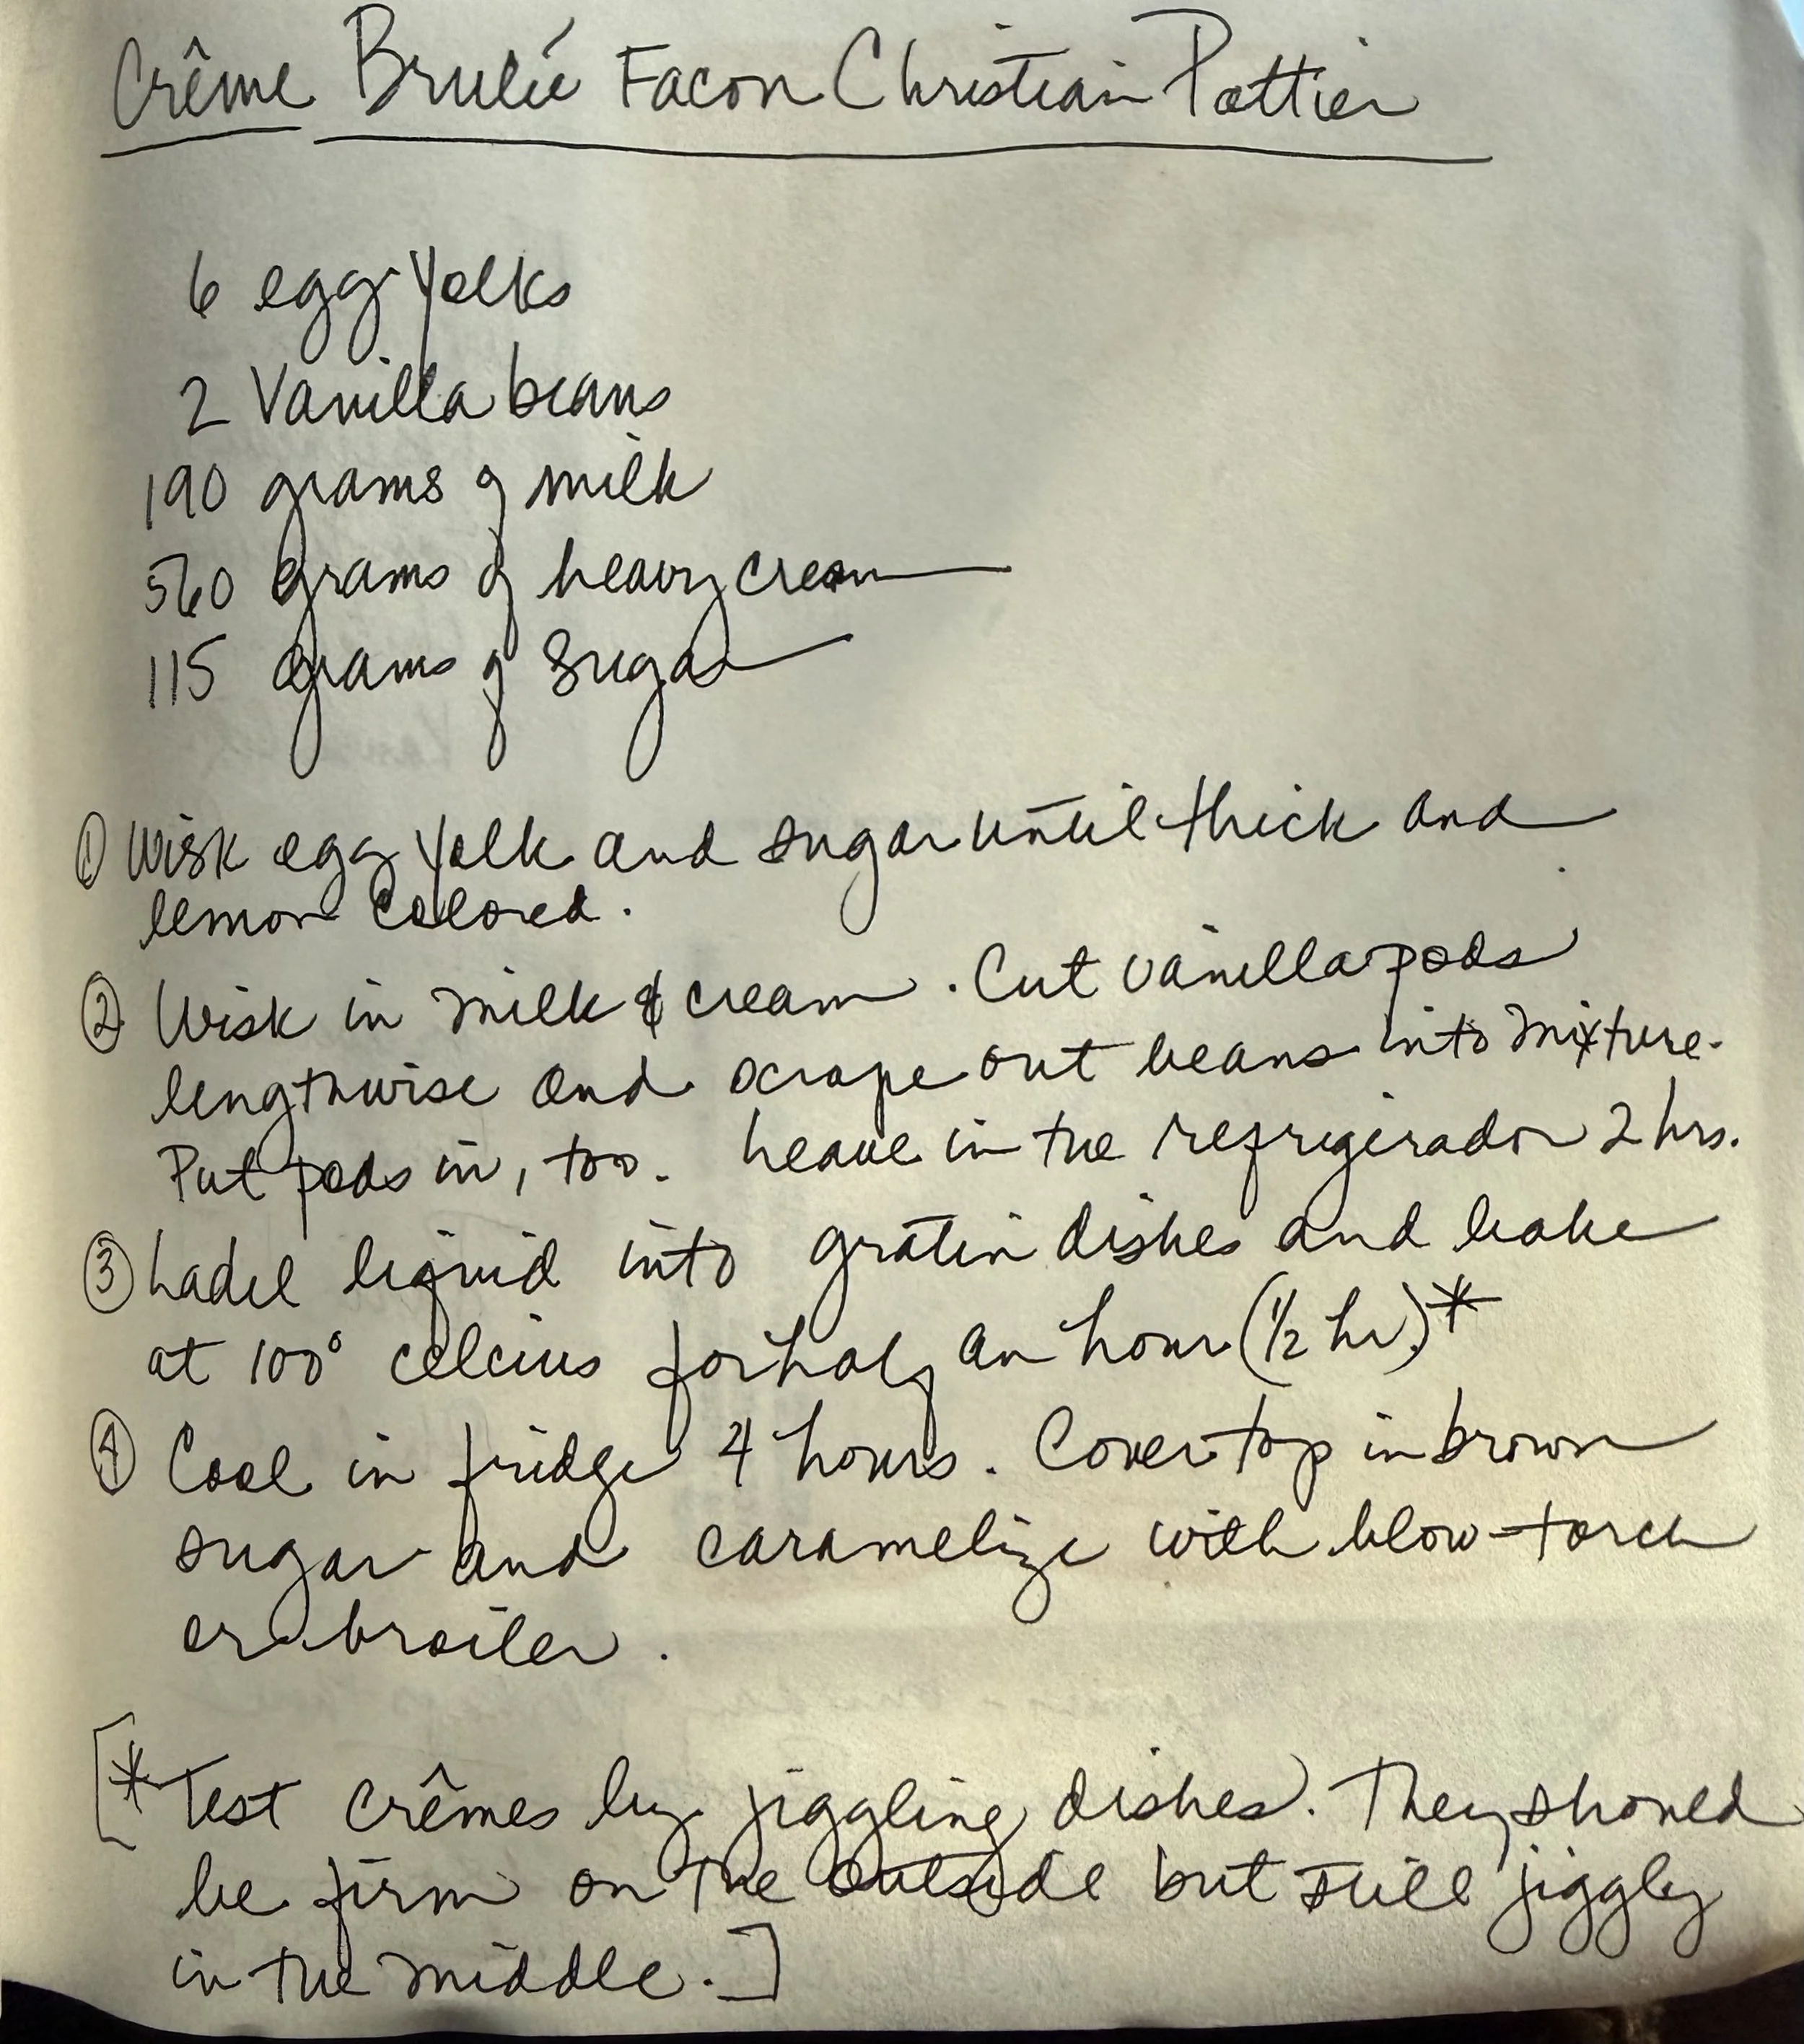 Crême Brulée Facon Christian Pottier
6 egg yolks
2 Vanilla beans
190 grams of milk
560 grams of heavy cream
115 grams of sugar
① Wisk egg yolk and sugar until thick and
lemon colored.
② Wisk in milk & cream. Cut vanilla pods
lengthwise and scrape out beans into mixture.
Put pods in, too. Leave in the refrigerador 2 hrs.
③ Ladel liquid into gratin dishes and bake
at 100° celcius for half an hour (1/2 hr.)*
④ Cool in fridge 4 hours. Cover top in brown
sugar and caramelize with blow-torch
or broiler.
[*Test crêmes by jiggling dishes. They should
be firm on the outside but still jiggly
in the middle.]